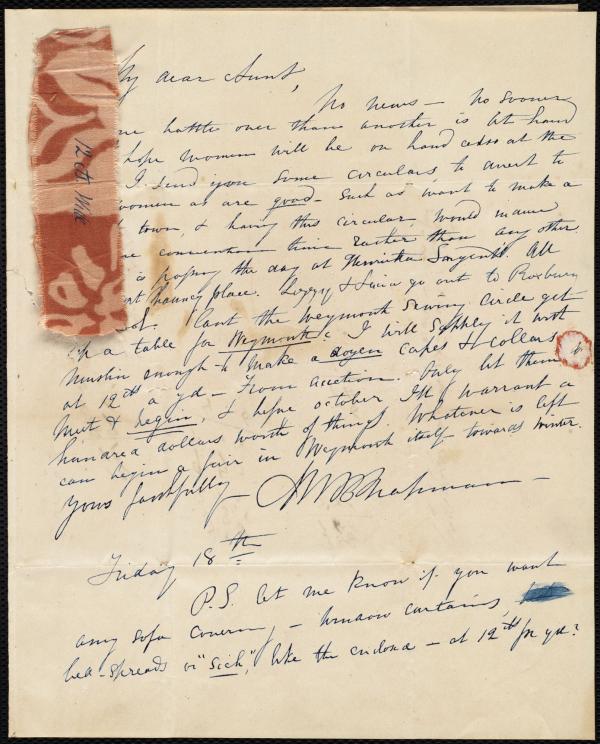 My dear Aunt,
No news – No sooner
one battle over than another is at hand
hope women will be on hand at the
I send you some circulars to avert to
women as are good – Such as want to make a
town, & having this circular, would in
convention time rather than any other.
is passing the day at Henrietta Sargent's. All
place. & Lucia go out to Roxbury
Cant the Weymouth Sewing Circle get
up a table for Weymouth? I will supply it with
Muslin enough to make a dozen capes & collars
at 12 cts a yd – from auction. Only let them
Meet & begin, & before october I'll warrant a
hundred dollars worth of things. Whatever is left
can begin a fair in Weymouth itself towards winter.
Yours faithfully M W Chapman –
Friday 18th
P.S. let me know if you want
any sofa covering – window curtains,
bed-spreads or "Sich," like the enclosed – at 12 cts pr yd?
12 ct